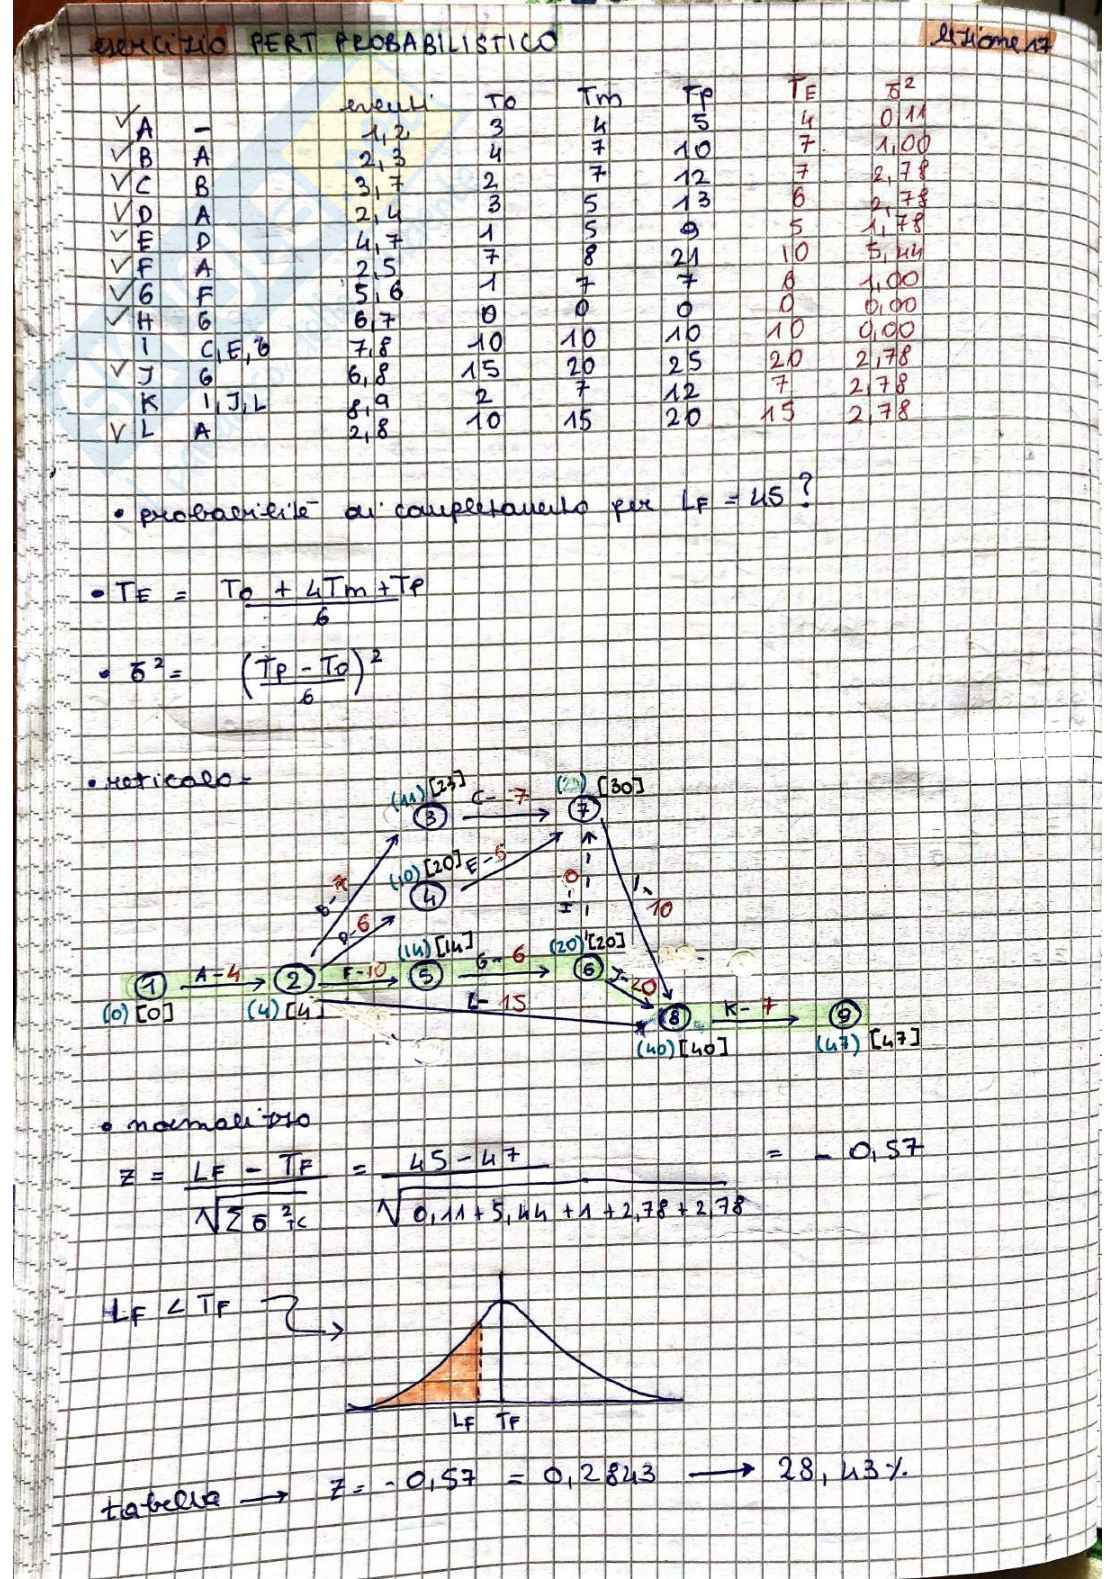 esercizio PERT PROBABILISTICO lezione 17
eventi To Tm Tp TE σ²
A - 1,2 3 4 5 4 0,11
B A 2,3 4 7 10 7 1,00
C B 3,7 2 7 12 7 2,78
D A 2,4 3 5 13 6 2,78
E D 4,7 1 5 9 5 1,78
F A 2,5 7 8 21 10 5,44
G F 5,6 1 7 7 6 1,00
H G 6,7 0 0 0 0 0,00
I C,E,G 7,8 10 10 10 10 0,00
J G 6,8 15 20 25 20 2,78
K I,J,L 8,9 2 7 12 7 2,78
L A 2,8 10 15 20 15 2,78
• probabilità di completamento per LF = 45?
• TE = To + 4Tm + Tp
6
• σ² = (Tp - To)²
6
• reticolo =
(11) [23] C - 7 [30]
3 7
(10) [20] E - 5
4
B - 7 D - 6 H - 0 I - 10
(14) [14] (20) [20]
1 A - 4 2 F - 10 5 G - 6 6 J - 20
(0) [0] (4) [4] L - 15
8 K - 7 9
(40) [40] (47) [47]
• normalizzo
Z = LF - TF = 45 - 47 = - 0,57
√Σσ²tc √0,11 + 5,44 + 1 + 2,78 + 2,78
LF < TF
LF TF
tabella → Z = - 0,57 = 0,2843 → 28,43%